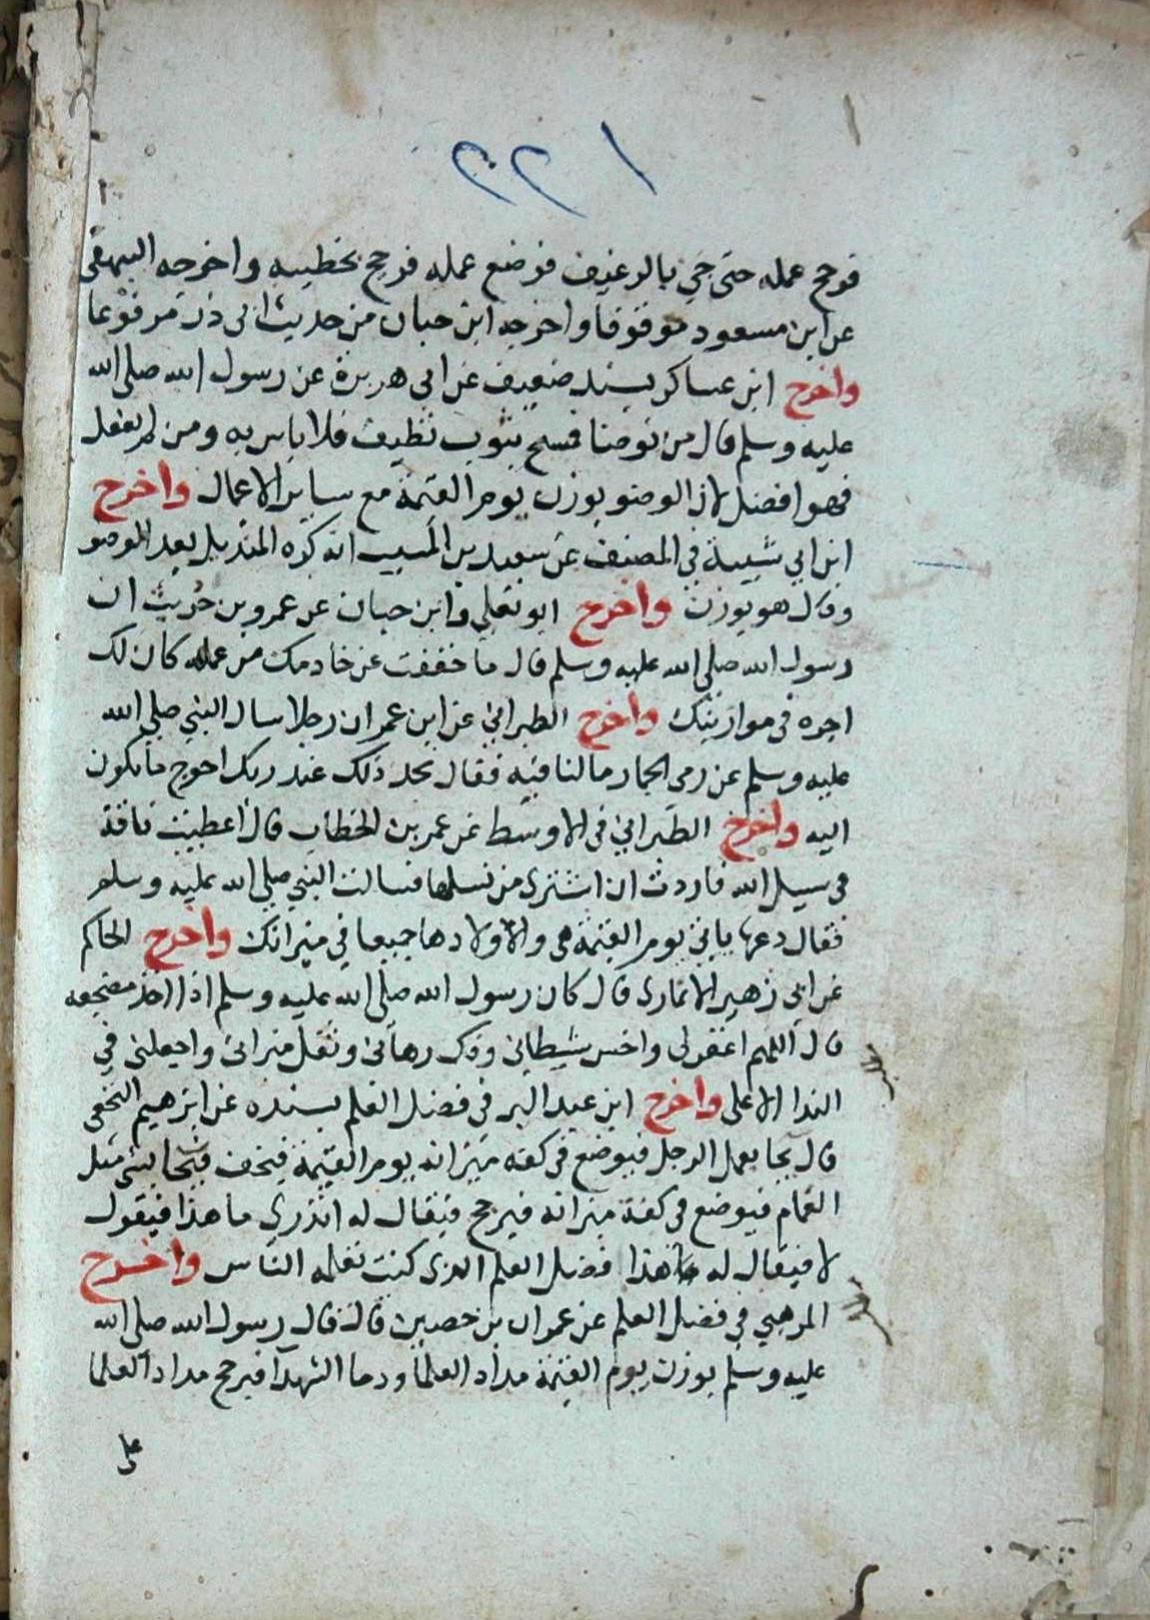 ١٢٢
فرجح عمله حتى جي بالرغيف فوضع عمله فرجح بخطيه واخرجه البيهقى
عن ابن مسعود موقوفا واخرجه ابن حبان من حديث ابى ذر مرفوعا
واخرج ابن عساكر بسند ضعيف عن ابى هريرة عن رسول الله صلى الله
عليه وسلم قال من توضا فمسح بثوب نظيف فلا باس به ومن لم يفعل
فهو افضل لان الوضو يوزن يوم القيمة مع ساير الاعمال واخرج
ابن ابي شيبة في المصنف عن سعيد بن المسيب انه كره المنديل بعد الوضو
وقال هو يوزن واخرج ابو يعلي وابن حبان عن عمرو بن حريث ان
رسول الله صلى الله عليه وسلم قال ما خففت عن خادمك من عمله كان لك
اجره في موازينك واخرج الطبراني عن ابن عمر ان رجلا سال النبي صلى الله
عليه وسلم عن رمى الجمار ما لنا فيه فقال تجد ذلك عند ربك احوج ما تكون
اليه واخرج الطبراني في الاوسط عن عمر بن الخطاب قال اعطيت ناقة
في سبيل الله فاردت ان اشترى من نسلها فسالت النبي صلى الله عليه وسلم
فقال دعها ياتي يوم القيمة هي والاولادها جميعا في ميزانك واخرج الحاكم
عن ابى زهير الانمارى قال كان رسول الله صلى الله عليه وسلم اذا اخذ مضجعه
قال اللهم اغفر لى واخس شيطاني وفك رهاني وثقل ميزانى واجعلنى في
الندا الاعلى واخرج ابن عبد البر في فضل العلم بسنده عن ابرهيم النخعى
قال يجا بعمل الرجل فيوضع في كفة ميزانه يوم القيمة فيخف فيجا بشي مثل
الغمام فيوضع في كفة ميزانه فيرجح فيقال له اتدري ما هذا فيقول
لا فيقال له هذا فضل العلم الذى كنت تعلمه الناس واخرج
المرهبي في فضل العلم عن عمران بن حصين قال قال رسول الله صلى الله
عليه وسلم يوزن يوم القيمة مداد العلما ودما الشهدا فيرجح مداد العلما
على